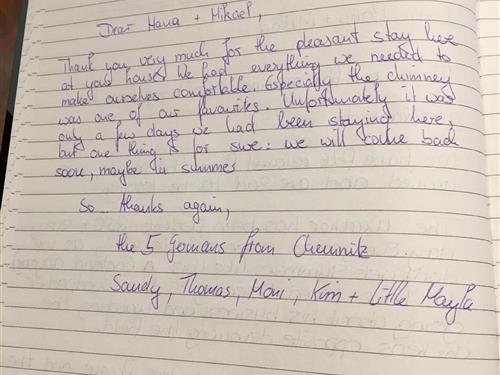 Dear Hana + Mikael,
Thank you very much for the pleasant stay here
at your house. We had everything we needed to
make ourselves comfortable. Especially the chimney
was one of our favourites. Unfortunately it was
only a few days we had been staying here,
but one thing is for sure: we will come back
soon, maybe in summer
So... thanks again,
the 5 Germans from Chemnitz
Sandy, Thomas, Moni, Kim + Little Mayla